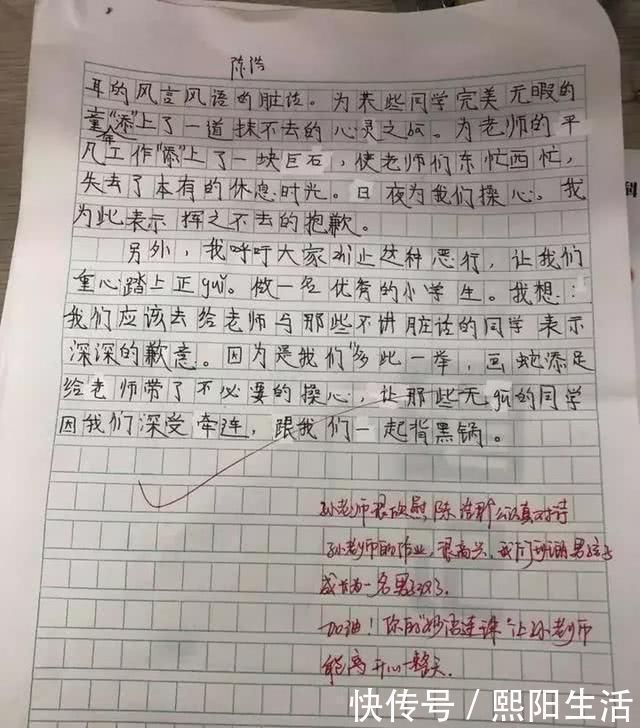 陈浩
耳的风言风语的脏话。为某些同学完美无暇的
童年“添”上了一道抹不去的心灵之
为老师的平
凡工作“添”上了一块巨石，使老师们东忙西忙，
失去了本有的休息时光。日夜为我们操心。我
为此表示挥之不去的抱歉。
另外，我呼吁大家 止这种恶行，让我们
重心踏上正guǐ。做一名优秀的小学生。我想：
我们应该去给老师与那些不讲脏话的同学表示
深深的歉意。因为是我们“多此一举，画蛇添足
给老师带了不必要的操心，让那些无gū的同学
因我们深受牵连，跟我们一起背黑锅。
孙老师很欣慰，陈浩 认真对待
孙老师的作业，很高兴，我们 的男孩
成长为一名男 了。
加油！你的“妙语连珠”让孙老师
能高开心一整天。
快传号／熙阳生活